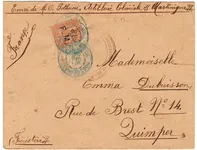 Envoi de M. C.
Artillerie Coloniale Martinique
France
Mademoiselle
Emma Dubuisson
Rue de Brest Nº 14
Quimper
(Finistère)